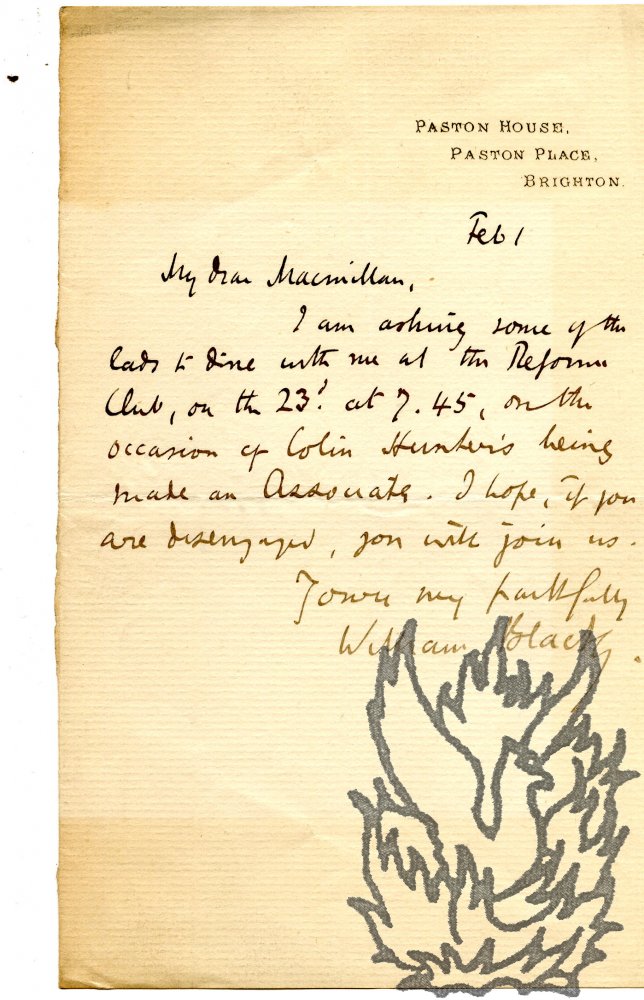 PASTON HOUSE,
PASTON PLACE,
BRIGHTON.
Feb 1
My dear Macmillan,
I am asking some of the
lads to dine with me at the Reform
Club, on the 23d. at 7.45, on the
occasion of Colin Hunter's being
made an Associate. I hope, if you
are disengaged, you will join us.
Yours very faithfully
William Black.